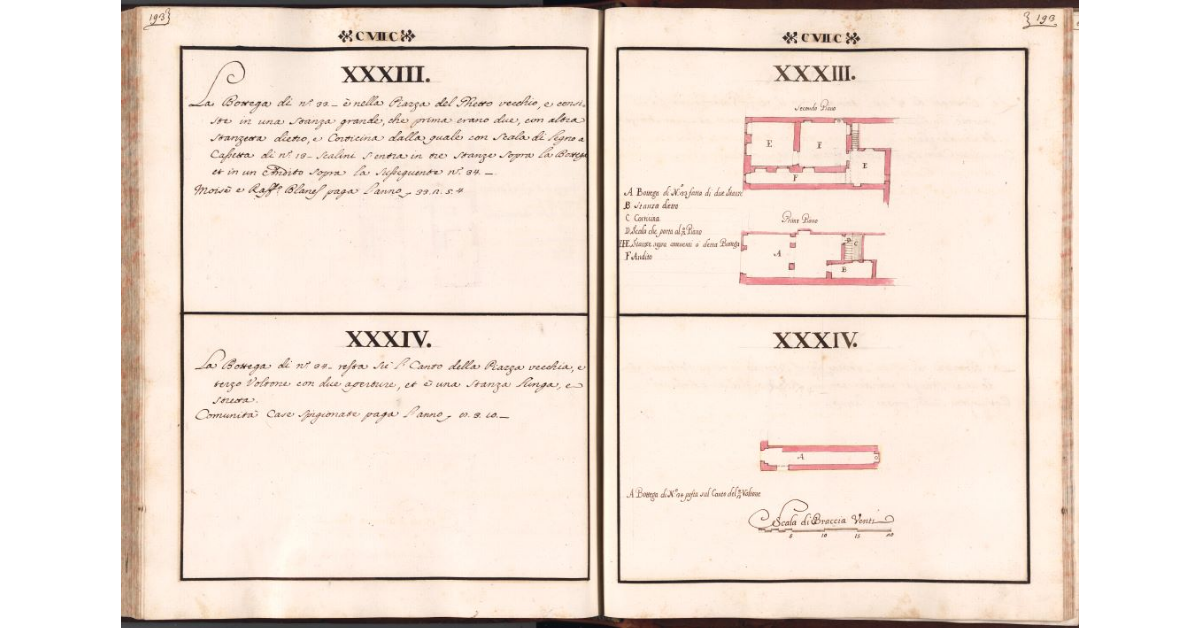 193
C VII C
XXXIII.
La Bottega di nº. 33_ è nella Piazza del Ghetto vecchio, e consi-
ste in una stanza grande, che prima erano due, con altra
stanzetta dietro, e Corticina dalla quale con Scala di Legno a
di nº. 18_ Scalini s'entra in tre stanze sopra la Bottega
et in un Andito sopra la susseguente nº. 34._
Moisè e Raff.º Blanes paga l'anno
XXXIV.
La Bottega di nº. 34_ resta su'l Canto della Piazza vecchia, e
terzo Voltone con due aperture, et è una stanza lunga, e
stretta.
Comunità Case spigionate paga l'anno
193
C VII C
XXXIII.
Secondo Piano
E E E F
A Bottega di Nº 33 fatta di due stanze
B Stanza dietro
C Corticina
D Scala che porta al 2º Piano
Stanze sopra annesse a detta Bottega
F Andito
Primo Piano
A B C D
XXXIV.
A
A Bottega di Nº 34 posta sul Canto del Voltone
Scala di Braccia Venti
5 10 15 20